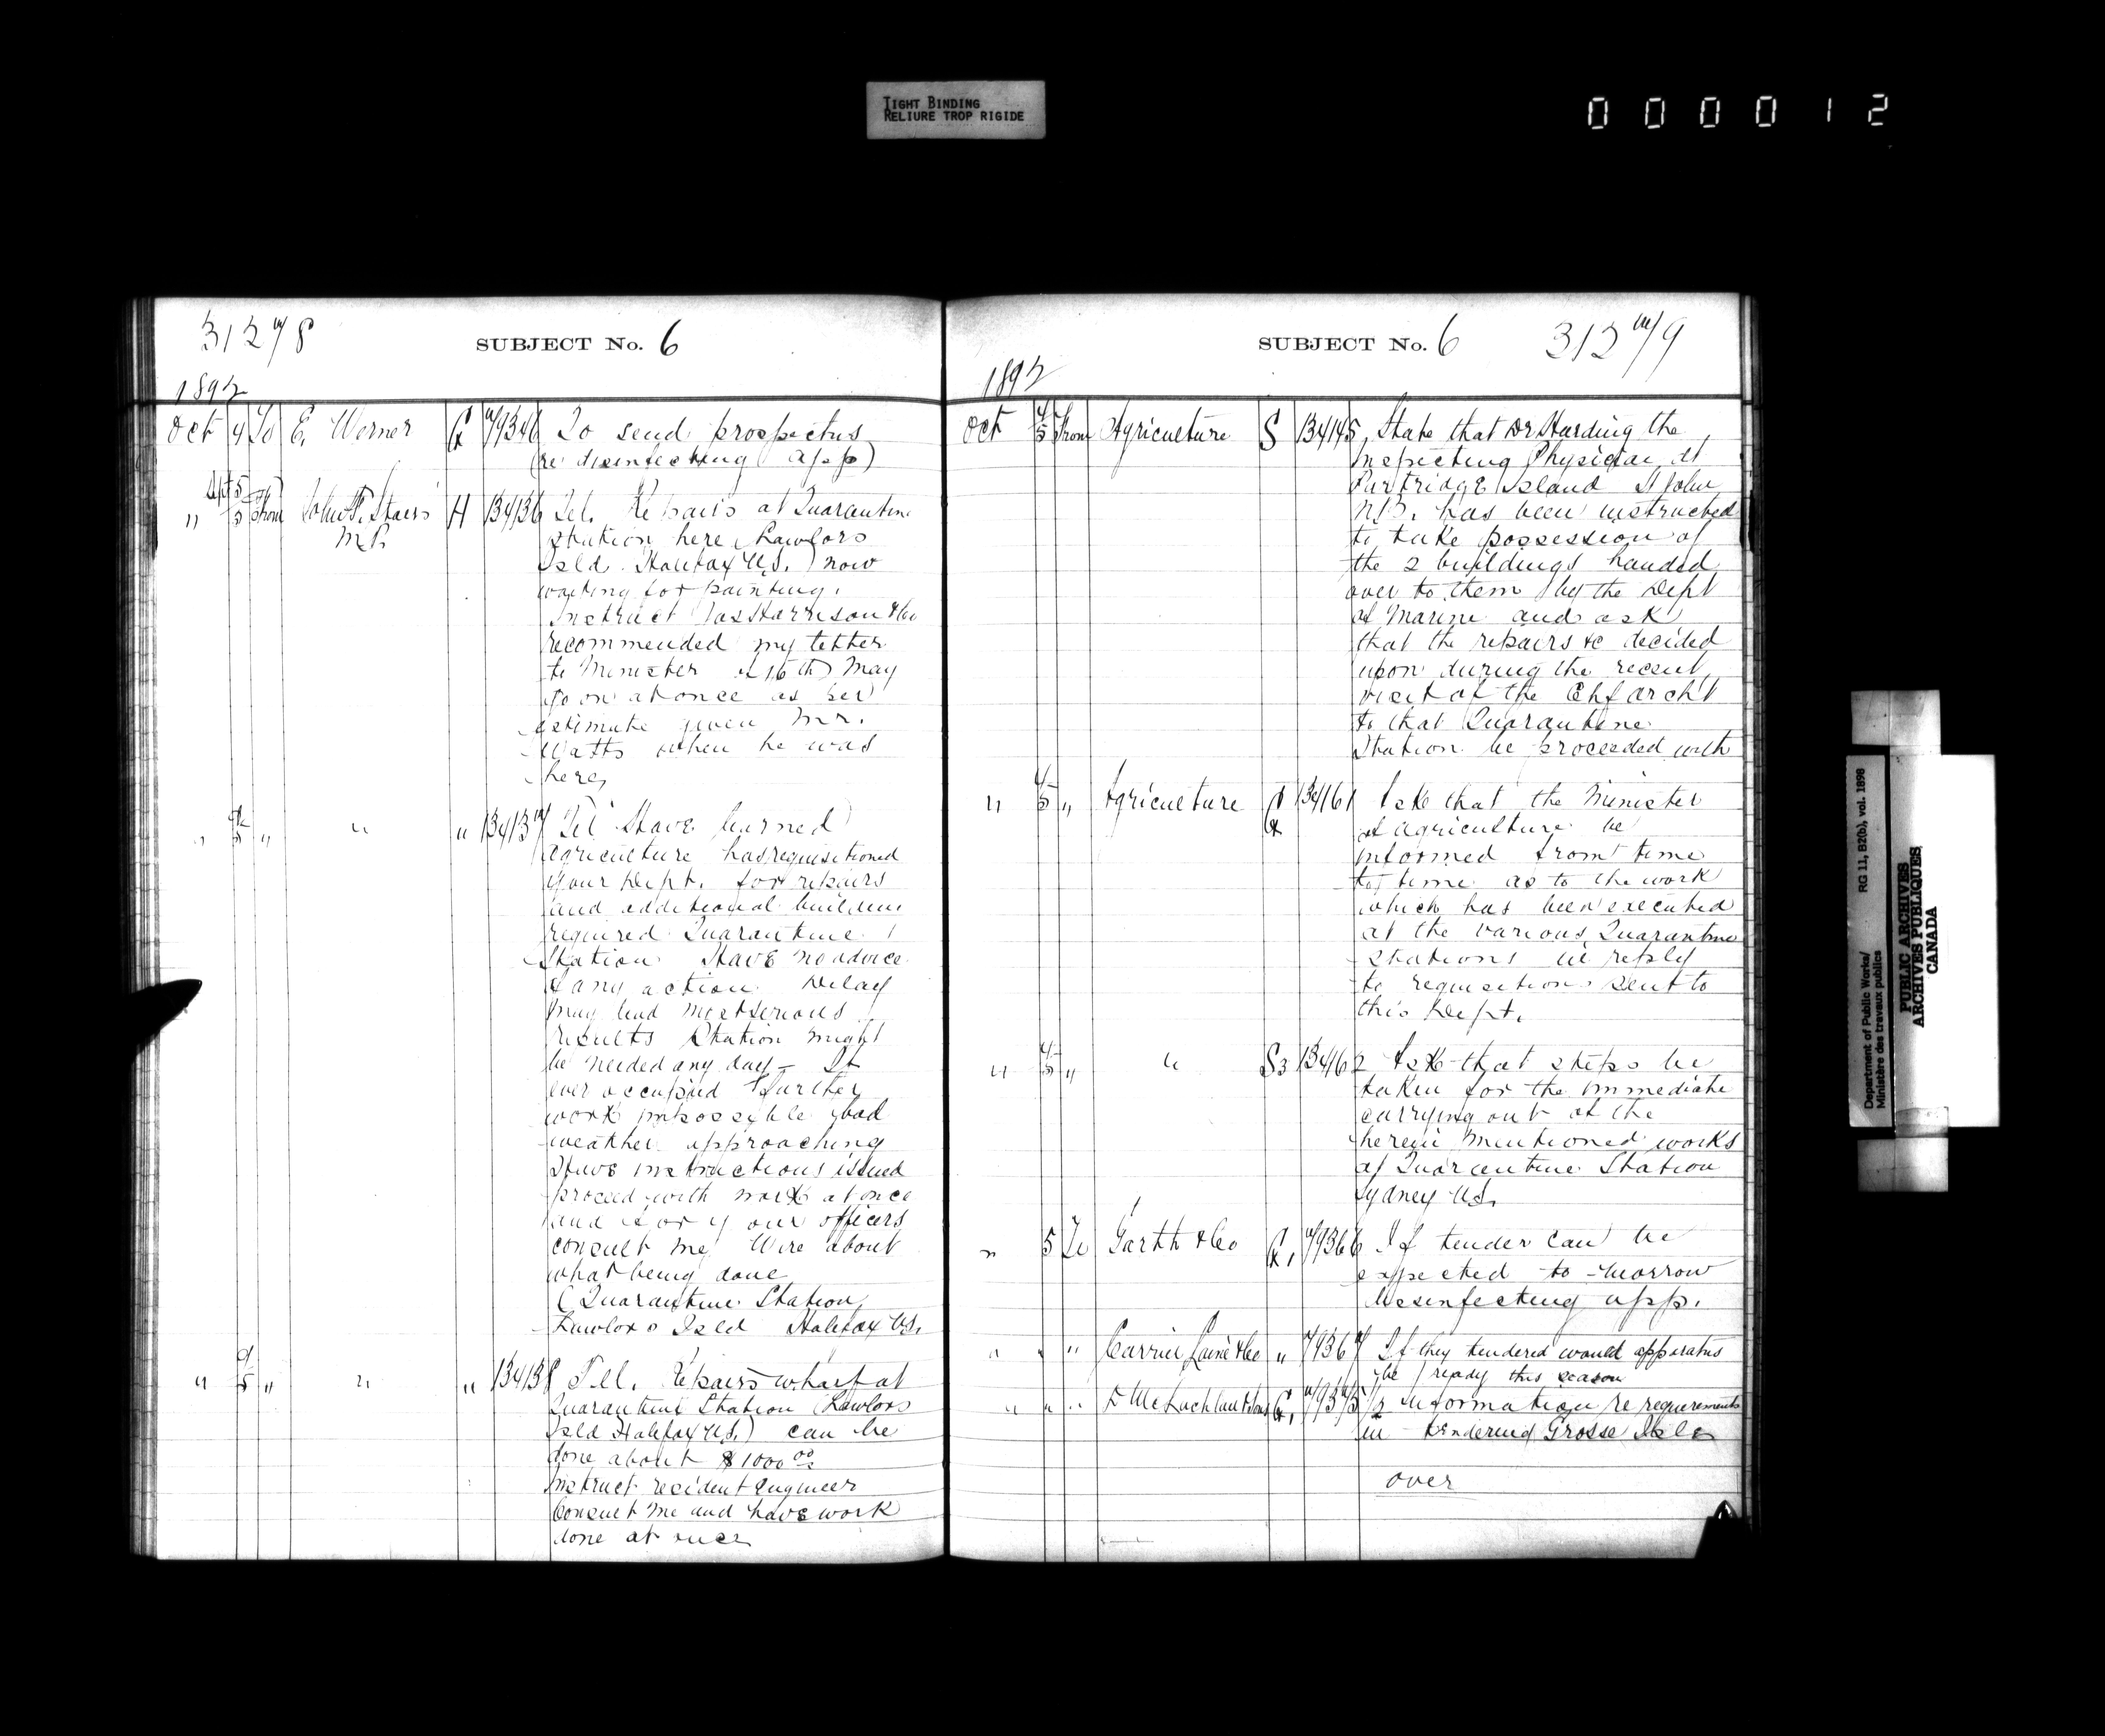 TIGHT BINDING
RELIURE TROP RIGIDE
000012
SUBJECT No. 6
1892
Oct 4 To E. Werner G To send prospectus
(re disinfecting app)
Sept 5
" From John F. Stairs H 134136 Tel. Repairs at Quarantine
M.P.
Station here (Lawlors
Isld. Halifax N.S.) now
waiting for painting.
Instruct Jas Harrison & Co
recommended my letter
to Minister of 16th May
go on at once as per
estimate given Mr.
Watts when he was
here,
" " " " 134137 Tel Have learned
Agriculture has requisitioned
your Dept. for repairs
and additional buildings
required Quarantine
Station Have no advice
of any action Delay
may lead most serious
results Station might
be needed any day - If
ever occupied further
work impossible bad
weather approaching
Have instructions issued
proceed with work at once
and your officers
consult me Wire about
what being done
(Quarantine Station
Lawlors Isld Halifax N.S.
" " " " 134138 Tel. Repairs wharf at
Quarantine Station (Lawlors
Isld Halifax N.S.) can be
done about $1000 00
Instruct resident Engineer
Consult me and have work
done at once
SUBJECT No. 6
1892
Oct 4/5 From Agriculture S 134145 State that Dr Harding the
Inspecting Physician at
Partridge Island St John
N.B. has been instructed
to take possession of
the 2 buildings handed
over to them by the Dept
of Marine and ask
that the repairs &c decided
upon during the recent
visit of the Chf arch't
to that Quarantine
Station be proceeded with
" 4/5 " Agriculture 134161 Ask that the Minister
of Agriculture be
informed from time
to time as to the work
which has been executed
at the various Quarantine
Stations in reply
to requisitions sent to
this Dept.
" 4/5 " " S3 134162 Ask that steps be
taken for the immediate
carrying out of the
herein mentioned works
at Quarantine Station
Sydney N.S.
" 5 To Garth & Co G, If tender can be
expected to-morrow
Desinfecting app.
" " " Carrier Laine & Co " If they tendered would apparatus
be ready this season
" " " McLachlan G, Information re requirements
in tendering Grosse Isle
over
Department of Public Works/
Ministère des travaux publics
RG 11, B2(b), vol. 1898
PUBLIC ARCHIVES
ARCHIVES PUBLIQUES
CANADA